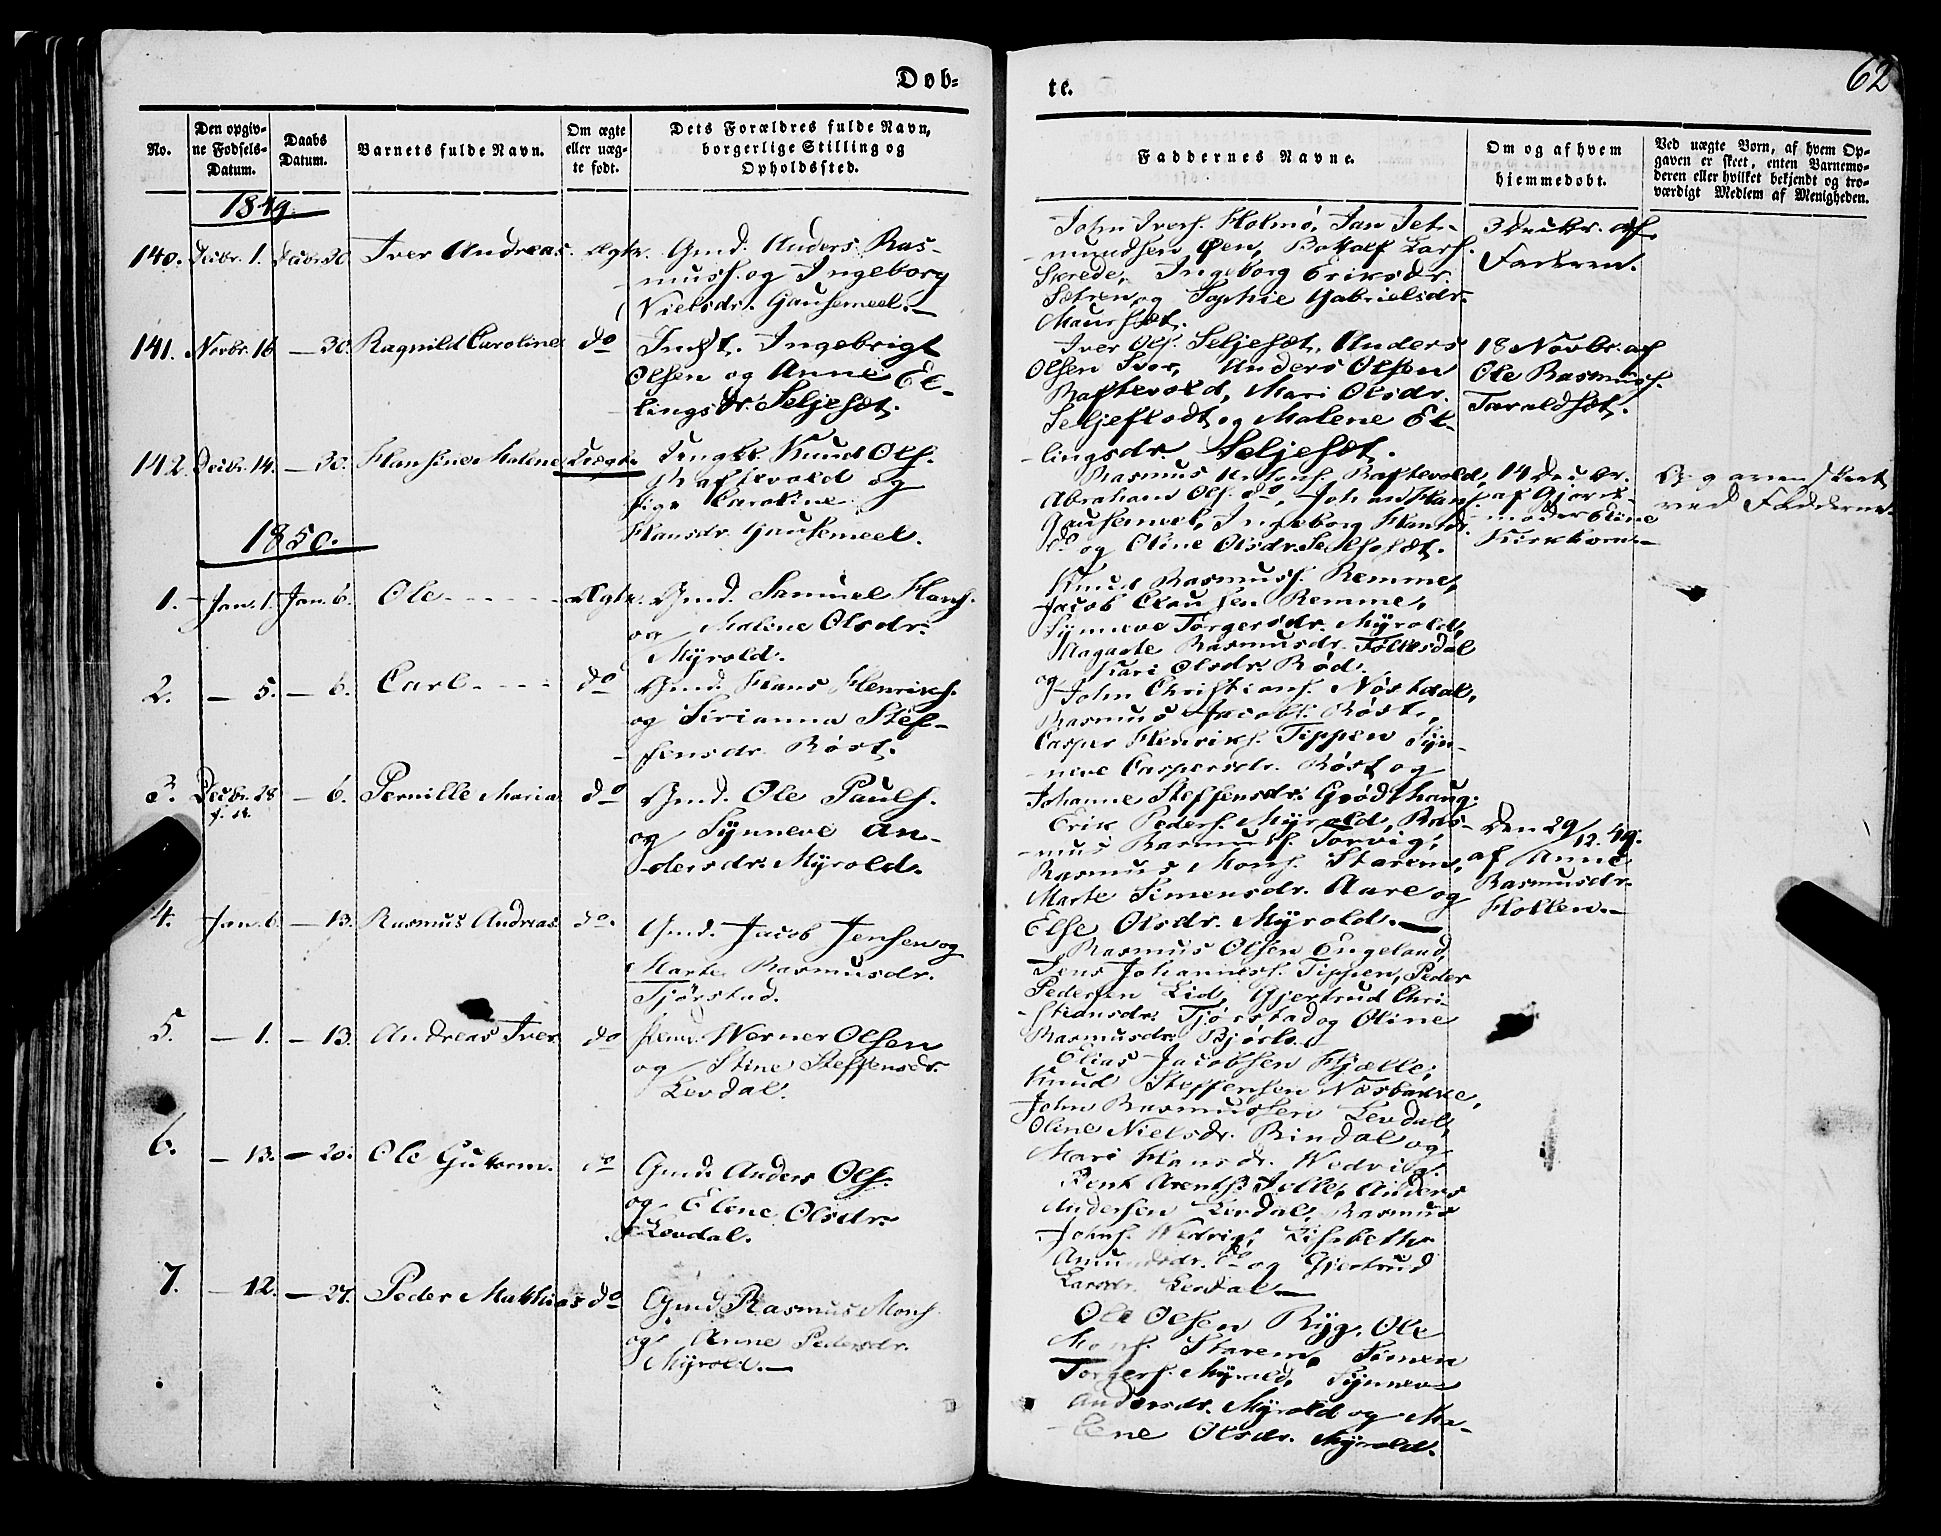 Døb=
te.
62
No.
Den opgiv-
ne Fødsels-
Datum.
Daabs
Datum.
Barnets fulde Navn.
Om ægte
eller uæg-
te født.
Dets Forældres fulde Navn,
borgerlige Stilling og
Opholdssted.
Faddernes Navne.
Om og af hvem
hjemmedøbt.
Ved uægte Børn, af hvem Op-
gaven er skeet, enten Barnemo-
deren eller hvilket bekjendt og tro-
værdigt Medlem af Menigheden.
1849.
140. Decbr. 1. Decbr. 30. Iver Andreas. Ægte. Gmd. Anders Ras-
muss. og Ingeborg
Nielsdr. Gausemeel.
John Ivers. Holmø, Jan Jet-
mundsen Øen, Bottolf Lars.
Ingeborg Eriksdr.
Sætren og Sophie Gabrielsdr.
Maursæt.
3 Decbr. af
Faderen.
141. Novbr. 16 — 30. Ragnild Caroline do Indst. Ingebrigt
Olsen og Anne El-
lingsdr. Seljesæt.
Iver Ols. Seljesæt, Anders
Olsen Svor, Anders Olsen
Raftevold, Mari Olsdr.
Seljeflodt og Malene El-
lingsdr. Seljesæt.
18 Novbr. af
Ole Rasmuss.
Taraldsæt.
142. Decbr. 14. — 30. Hansine Malene Uægte Ungk. Knud Ols.
Raftevold og
Pige Caroline
Hansdr. Gausemeel.
Rasmus Raftevold,
Abraham Ols. do, Johan Hans.
Gausemeel, Ingeborg Hansdr.
do og Oline Olsdr. Seljesæt.
14 Decbr.
af Gjord-
moder Eline
Kirkhorn.
Opgaven skeet
ved Fadderne.
1850.
1. Jan. 1. Jan. 6. Ole Ægte. Gmd. Samuel Hans.
og Malene Olsdr.
Myrold.
Knud Rasmuss. Remme,
Jacob Clausen Remme,
Synneve Torgersdr. Myrold,
Magarte Rasmusdr. Folkesdal
og Kari Olsdr. Rød.
2. — 5. — 6. Carl do Gmd. Hans Henriks.
og Sirianna Stef-
fensdr. Røst.
John Christians. Nøstdal,
Rasmus Jacobs. Røst,
Casper Henriks. Tippen, Syn-
neve Caspersdr. Røst og
Johanne Steffensdr. Grødthaug.
3. Decbr. 28 — 6. Pernille Maria do Gmd. Ole Pauls.
f. A.
og Synneve An-
dersdr. Myrold.
Erik Peders. Myrold, Ras-
mus Rasmuss. Torvig,
Rasmus Mons. Starem,
Marte Simensdr. Aare og
Else Olsdr. Myrold.
Den 29/12.49.
af Anne
Rasmusdr.
Holten.
4. Jan. 6 — 13. Rasmus Andreas do. Gmd. Jacob Jensen og
Marte Rasmusdr.
Tjørstad.
Rasmus Olsen Engeland,
Jens Johanness. Tippen, Peder
Pedersen Lid, Gjertrud Chri-
stiansdr. Tjørstad og Oline
Rasmusdr. Bjørlo.
5. — 1. — 13. Andreas Iver do Werner Olsen
og Stine Steffensdr.
Levdal.
Elias Jacobsen Hjelle,
Knud Steffensen Næsbakke,
John Rasmussen Levdal,
Oline Nielsdr. Rindal og
Mari Hansdr. Wedvig.
6. — 13. — 20. Ole Guttorm. do Gmd. Anders Ols.
og Eline Olsdr.
Levdal.
Bent Arents. Anders
Andersen Levdal, Rasmus
Johns. Wedvig, Lisebethe
Amundsdr. do og Gjertrud
Larsdr. Levdal.
7. — 12. — 27. Peder Mathias do Gmd. Rasmus Mons.
og Anne Pedersdr.
Myrold.
Ole Olsen Ryg, Ole
Mons. Starem, Simen
Torgers. Myrold, Synneve
Andersdr. Myrold og Ma-
lene Olsdr. Myrold.